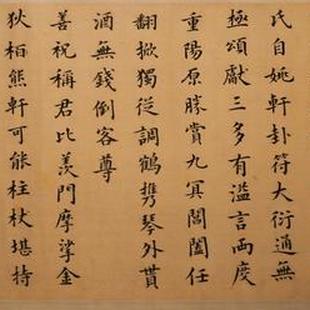 氏自姚軒卦符大衍通無
極頌獻三多有溢言兩度
重陽原勝賞九冥閶闔任
翻掀獨從調鶴携琴外貰
酒無錢倒客尊
善祝稱君比羨門摩挲金
狄栢熊軒可能柱杖堪持